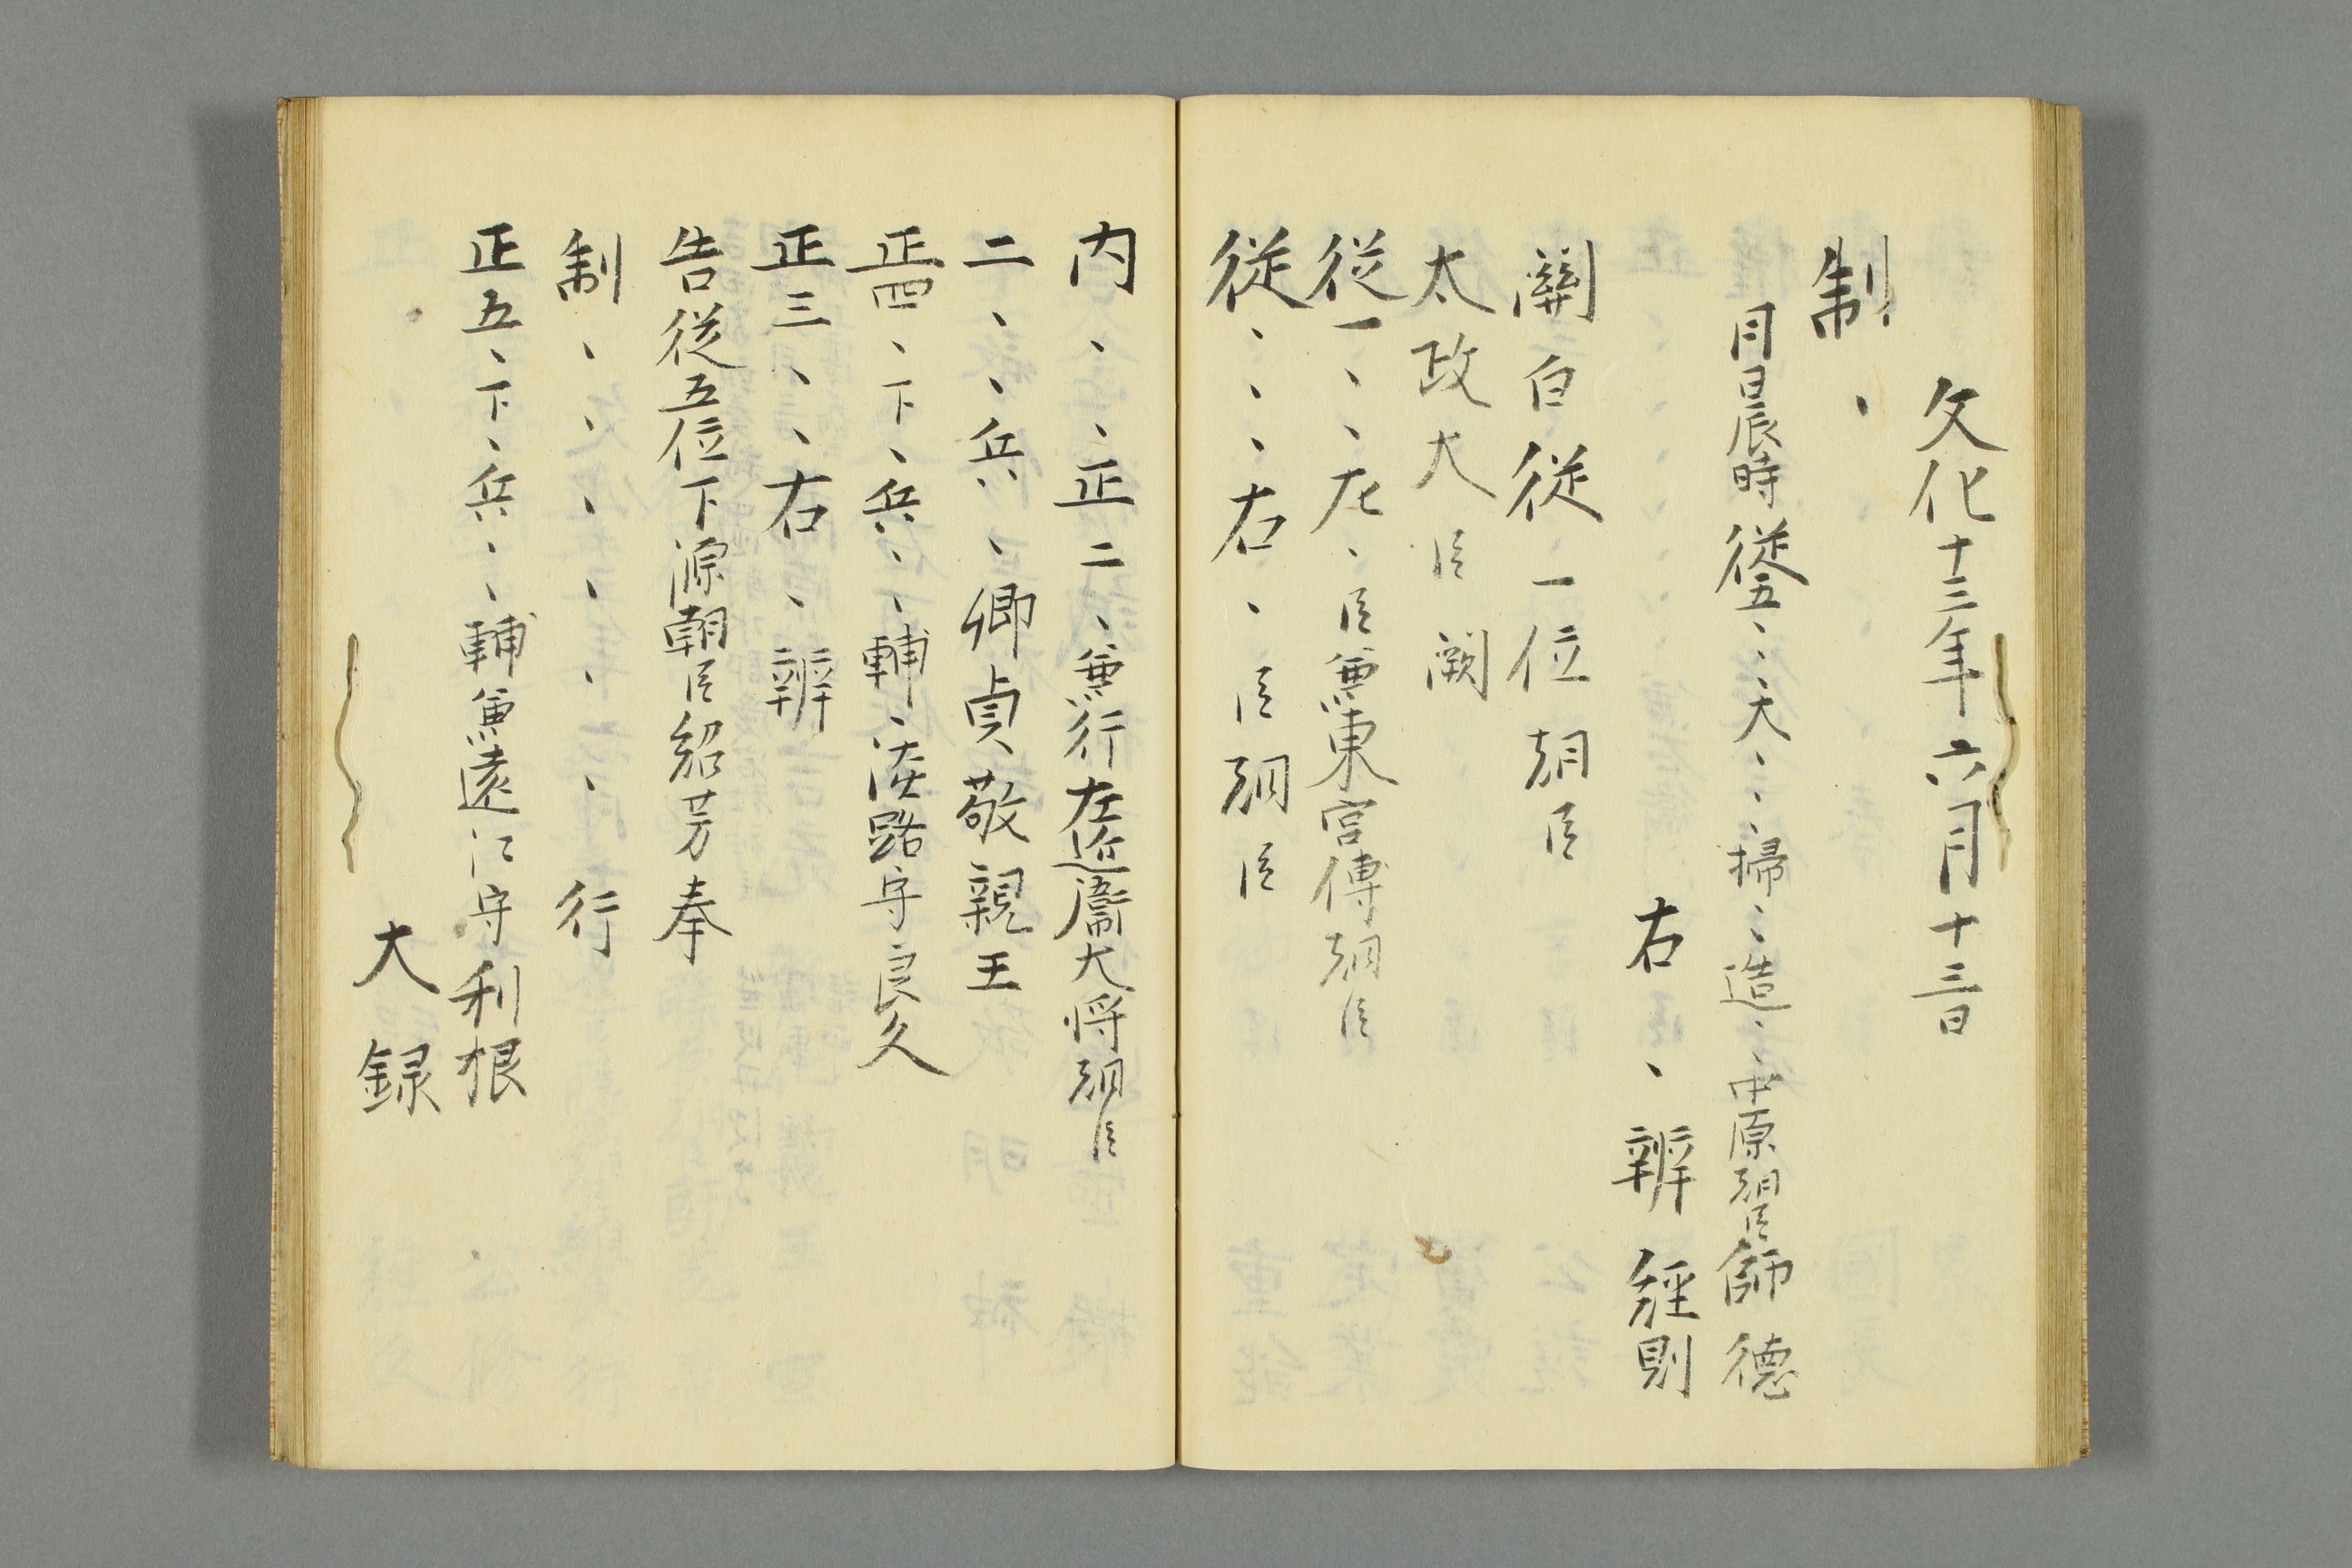 文化十三年六月十三日
制、
月日辰時従五、、大、、、掃、、造、、中原朝臣師徳
右、辨経則
關白従一位朝臣
太政大臣闕
従一、、左、臣兼東宮傅朝臣
従、、、右、臣朝臣
内、、正二、兼行左近衞大将朝臣
二、、兵、卿貞敬親王
正四、下、兵、、輔、淡路守良久
正三、、右、辨
告従五位下源朝臣紹芳奉
制、、、、、、行
正五、下、兵、、輔兼遠江守利根
大録